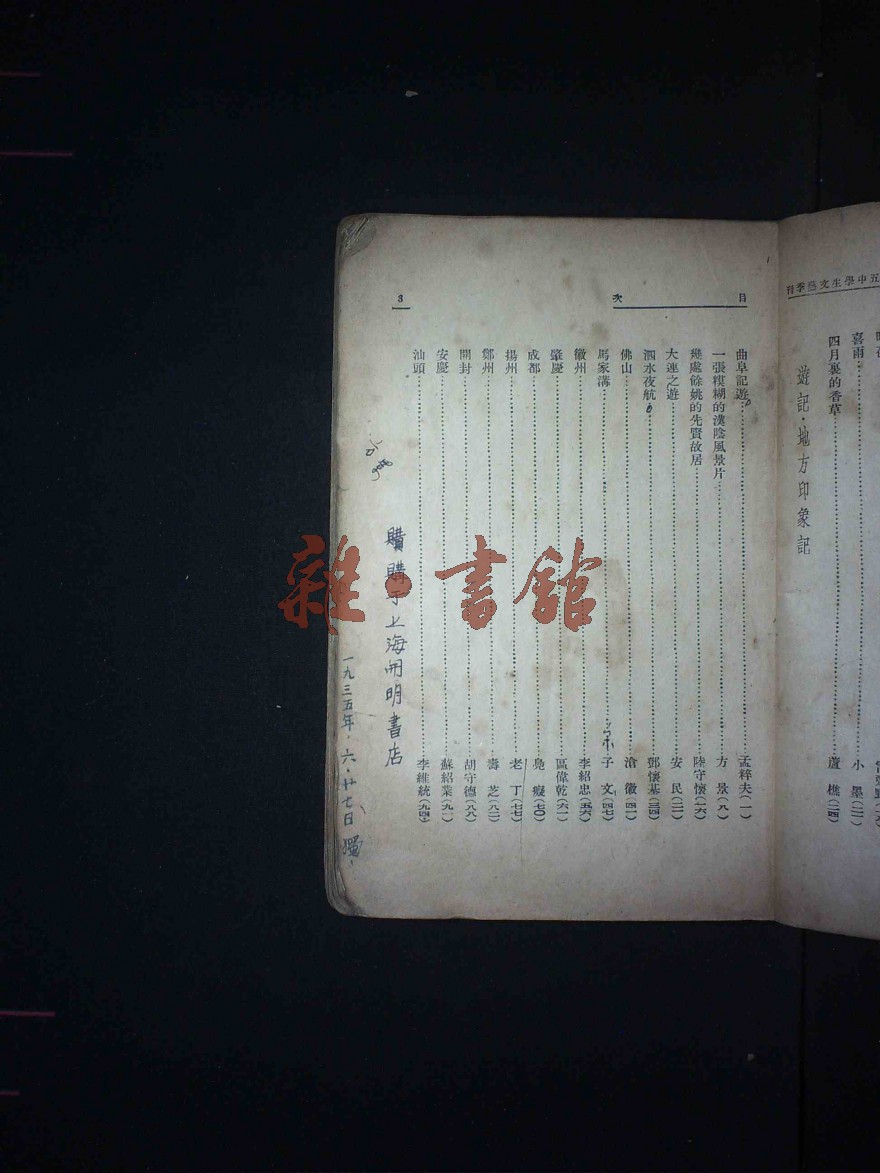 五中學生文藝季刊
喜雨 小墨(二一)
四月裏的香草 蘆樵(二四)
遊記·地方印象記
目次 3
曲阜記遊 孟粹夫(一)
一張糢糊的漢陰風景片 方景(八)
幾處餘姚的先賢故居 陸守懷(一六)
大連之遊 安民(二二)
泗水夜航 鄧懷基(三四)
佛山 滄徽(四一)
馬家溝 子文(四七)
徽州 李紹忠(五六)
肇慶 區偉乾(六一)
成都 癡(七〇)
揚州 老丁(七七)
鄭州 壽芝(八二)
開封 胡守德(八八)
安慶 蘇紹業(九一)
汕頭 李維統(九四)
購于上海開明書店
一九三五年·六·廿七日
雜·書館